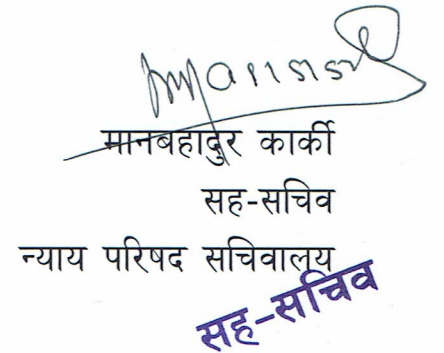 मानबहादुर कार्की
सह-सचिव
न्याय परिषद सचिवालय
सह-सचिव